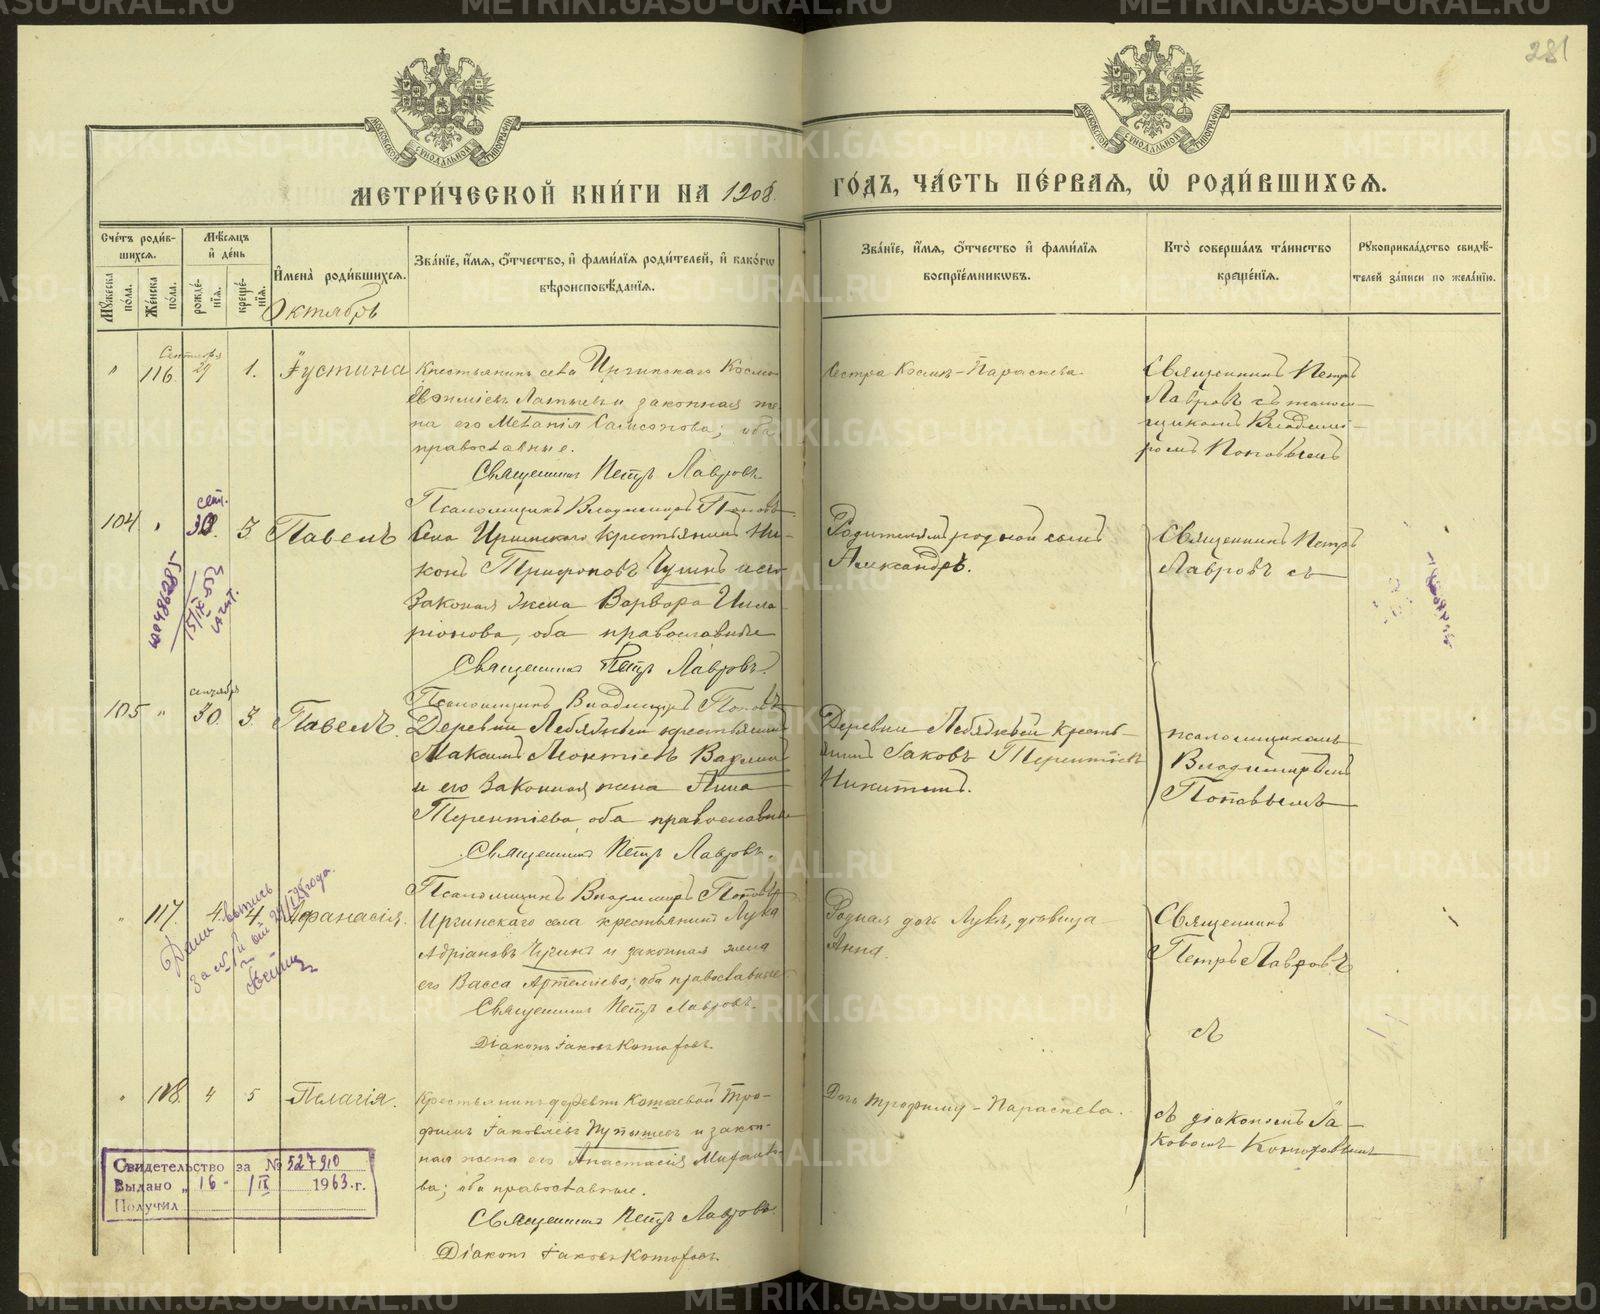 281
МОСКОВСКОЙ СѴНОДАЛЬНОЙ ТИПОГРАФІИ
МОСКОВСКОЙ СѴНОДАЛЬНОЙ ТИПОГРАФІИ
МЕТРИ́ЧЕСКОЙ КНИ́ГИ НА 1908 ГО́ДЪ, ЧА́СТЬ ПЕ́РВАЯ, Ѡ РОДИ́ВШИХСЯ.
Сче́тъ роди́вшихся.
Мꙋ́жеска по́ла.
Же́нска по́ла.
Мѣ́сяцъ и҆ де́нь
рожде́нїя.
креще́нїя.
И҆мена̀ роди́вшихся.
Октябрь
Зва́нїе, и҆́мя, ѻ҆́тчество, и҆ фами́лїя роди́телей, и҆ како́гѡ
вѣроисповѣ́данїя.
Зва́нїе, и҆́мя, ѻ҆́тчество и҆ фами́лїя
воспрїе́мникѡвъ.
Кто̀ соверша́лъ та́инство
креще́нїя.
Рꙋкоприкла́дство свидѣ́-
телей за́писи по жела́нїю.
" 116 Сентября 29 1. Іустина
Крестьянинъ села Иргинскаго Косма
Евфиміевъ Латышевъ и законная же-
на его Меѳанія Самсонова; оба
православные.
Священникъ Петръ Лавровъ.
Псаломщикъ Владимиръ Поповъ
Сестра Космы - Параскева.
Священникъ Петръ
Лавровъ съ псалом-
щикомъ Владими-
ромъ Поповымъ
104 " сент. 30. 3 Павелъ
Села Иргинскаго крестьянинъ Ни-
конъ Трифоновъ Чушнъ и его
законая жена Варвара Илла-
ріонова, оба православные
Священникъ Петръ Лавровъ.
Псаломщикъ Владимиръ Поповъ
Родителямъ родной сынъ
Александръ.
Священникъ Петръ
Лавровъ съ
15/IX 55
105 " сентября 30. 3 Павелъ.
Деревни Лебяжьей крестьянинъ
Максимъ Леонтіевъ
и его законная жена Анна
Терентіева, оба православные
Священникъ Петръ Лавровъ.
Псаломщикъ Владимиръ Поповъ
Деревни Лебяжьей кресть-
янинъ Іаковъ Терентіевъ
Никитинъ.
псаломщикомъ
Владимиромъ
Поповымъ
" 117. 4. 4. Афанасія.
Иргинскаго села крестьянинъ Лука
Адріановъ Чугинъ и законная жена
его Васса Артеміева; оба православные
Священникъ Петръ Лавровъ.
Діаконъ Іаковъ Котофовъ.
Родная дочь Луки, девица
Анна.
Священникъ
Петръ Лавровъ
съ
Дана выпись
" 118. 4 5 Пелагія.
Крестьянинъ деревни Котаевой Тро-
фимъ Іаковлевъ Пупышевъ и закон-
ная жена его Анастасія
ва; оба православные.
Священникъ Петръ Лавровъ.
Діаконъ Іаковъ Котофовъ.
Дочь Трофима - Параскева.
съ діакономъ Іа-
ковомъ Котофовымъ
Свидетельство за № 527910
Выдано „ 16 - IX 1963 г.
Получил
METRIKI.GASO-URAL.RU